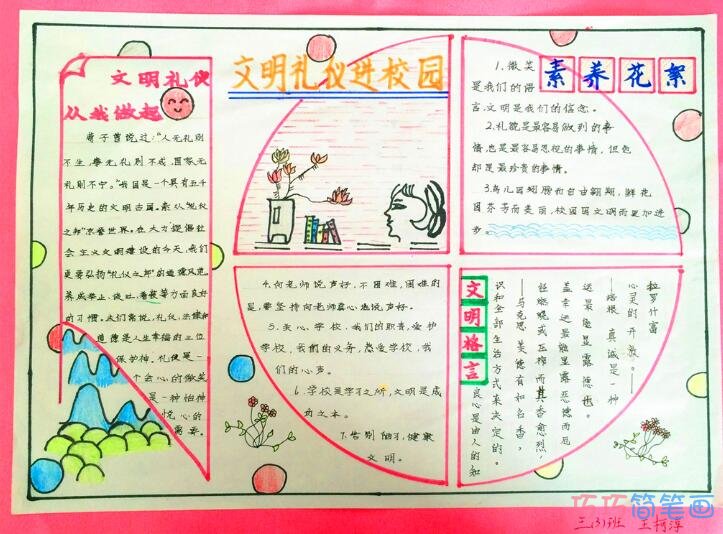 文明礼仪
从我做起
荀子曾说过:“人无礼则
不生,事无礼则不成,国家无
礼则不宁。”我国是一个具有五千
年历史的文明古国。素以“礼仪
之邦”京誉世界。在大力提倡社
会主义文明建设的今天,我们
更要弘扬“礼仪之邦”的道德风范
养成举止、谈吐、着装等方面良好
的习惯。
人们常说,礼仪、法律和
道德是人生幸福的三位
保护神。礼仪是
一个会心的微笑
是一种怡神
悦心的
需要。
文明礼仪进校园
素养花絮
1.微笑
是我们的语
言,文明是我们的信念。
2.礼貌是最容易做到的事
情,也是最容易忽视的事情,但也
却是最珍贵的事情。
3.鸟儿因翅膀而自由翱翔,鲜花
因芬芳而美丽,校园因文明而更加进
步。
4.向老师说声好,不困难,困难的
是,要坚持向老师真心地说声好。
5.关心学校,我们的职责,爱护
学校,我们的义务,热爱学校,我
们的心声。
6.学校是学习之所,文明是成
功之本。
7.告别陋习,健康
文明。
文明格言
拉罗什富
心灵的开敞。——
——培根 真诚是一种
这最隐显露德也。
盖幸运最能显露恶德而厄
经燃烧或压榨而其香愈烈,
——马克思 美德有如名香,
识和全部生活方式来决定的。
良心是由人的知
三(3)班 王柯淳
巧巧简笔画